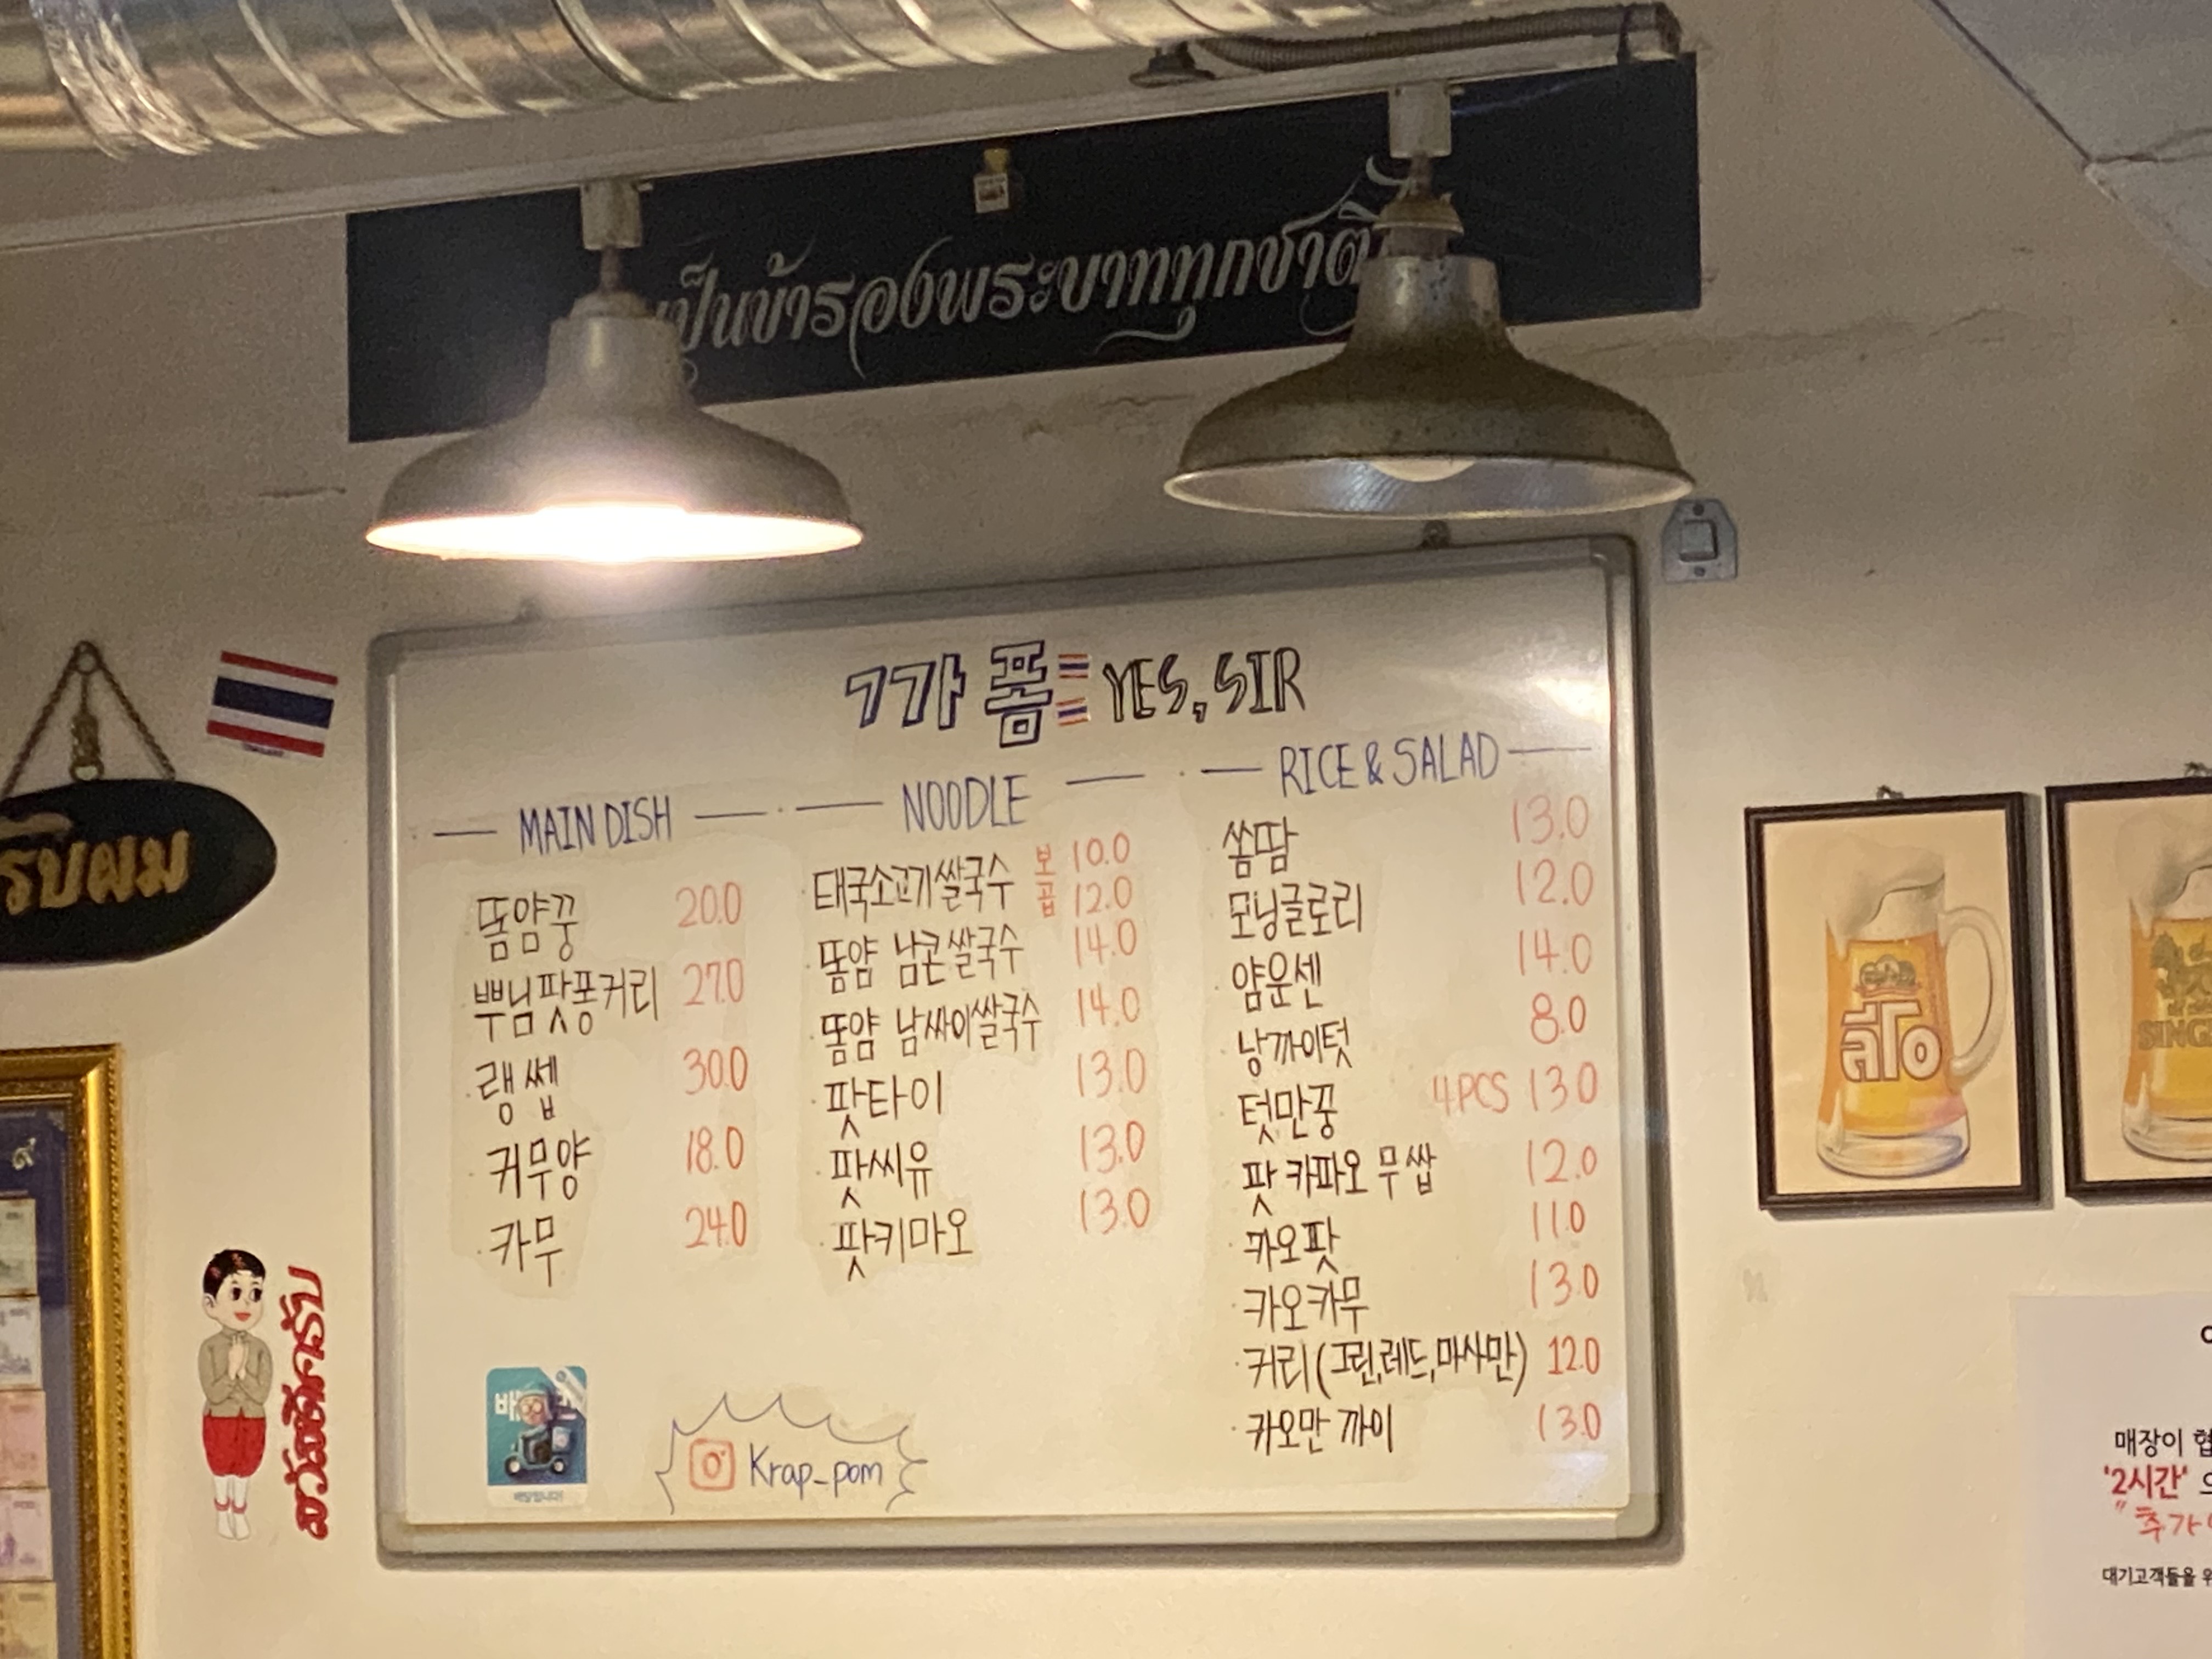 เป็นข้ารองพระบาททุกชาติ
THAILAND
รับผม
ㄱ가 폼 YES, SIR
MAIN DISH
똠얌꿍 20.0
뿌님팟퐁커리 27.0
랭쎕 30.0
커무양 18.0
카무 24.0
NOODLE
태국소고기쌀국수 보 10.0
곱 12.0
똠얌 남콘쌀국수 14.0
똠얌 남싸이쌀국수 14.0
팟타이 13.0
팟씨유 13.0
팟키마오 13.0
RICE & SALAD
쏨땀 13.0
모닝글로리 12.0
얌운센 14.0
낭까이텃 8.0
텃만꿍 4PCS 13.0
팟 카파오 무쌉 12.0
카오팟 11.0
카오카무 13.0
커리(그린,레드,마사만) 12.0
카오만 까이 13.0
Krap_pom
สวัสดีครับ
ลีโอ
๙
매장이 협
'2시간'
추가
대기고객들을 위